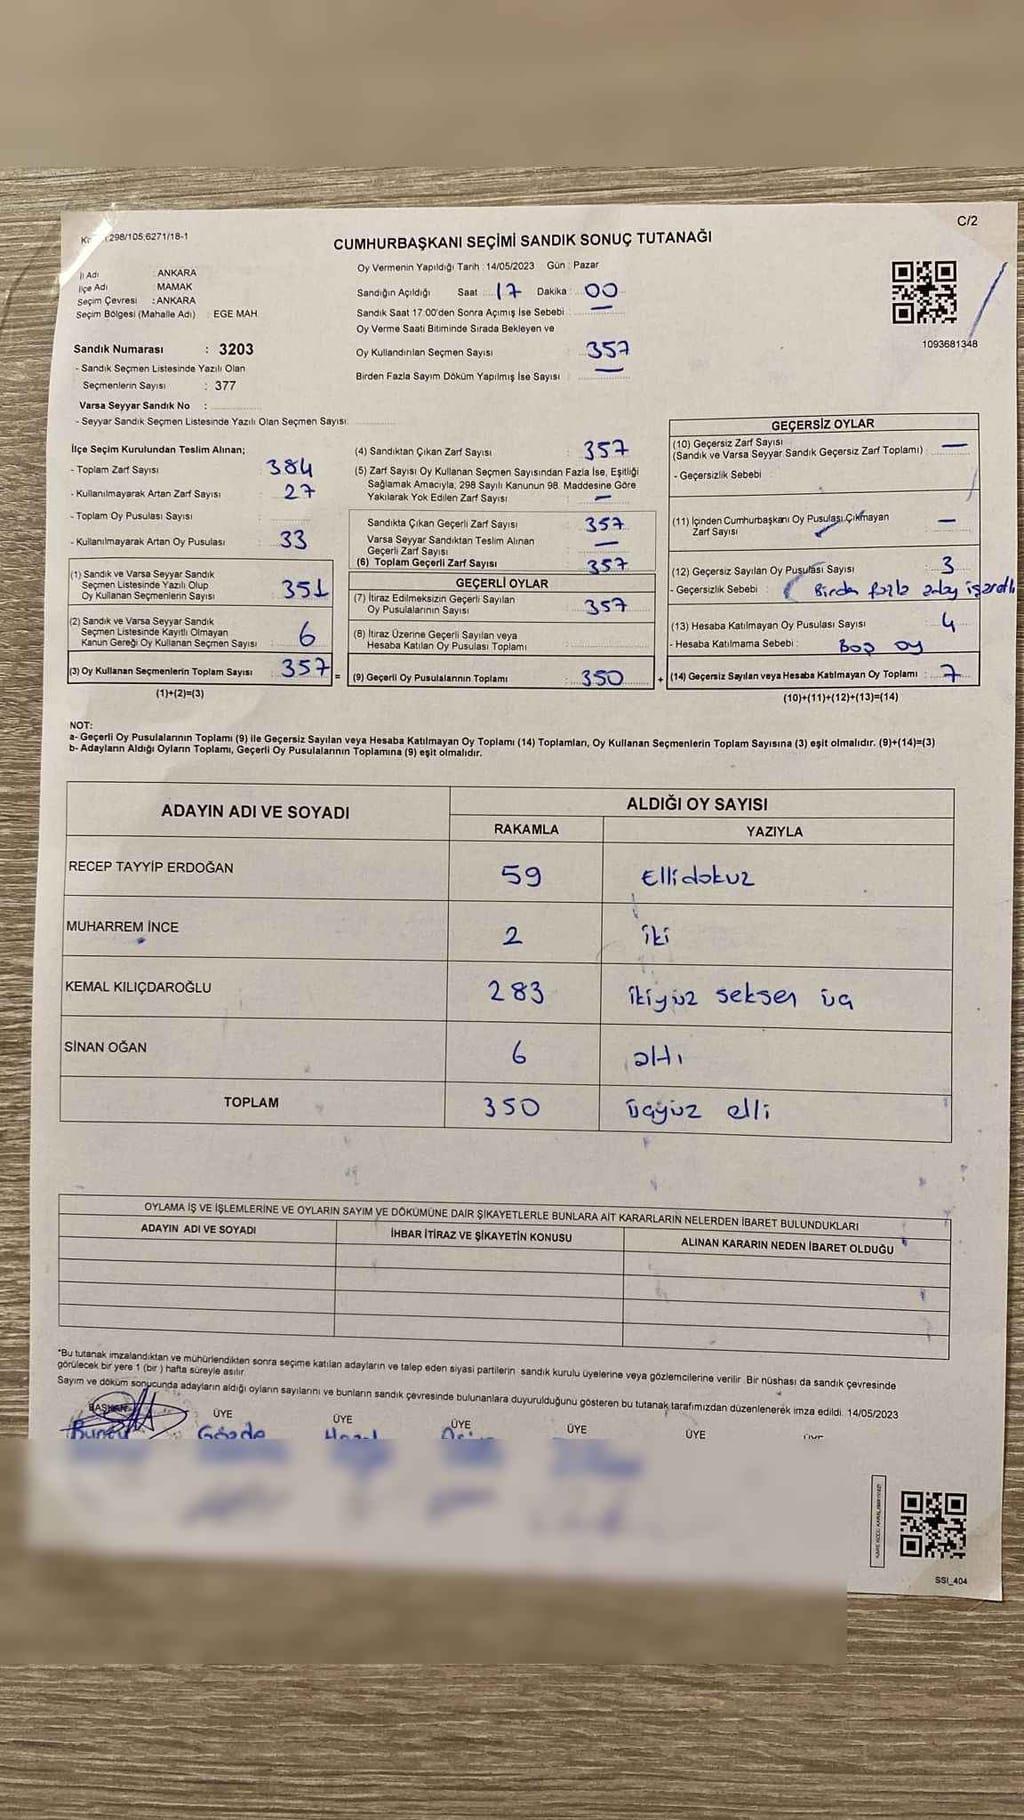 298/105;6271/18-1
C/2
CUMHURBAŞKANI SEÇİMİ SANDIK SONUÇ TUTANAĞI
İl Adı : ANKARA
İlçe Adı : MAMAK
Seçim Çevresi : ANKARA
Seçim Bölgesi (Mahalle Adı) : EGE MAH
Sandık Numarası : 3203
- Sandık Seçmen Listesinde Yazılı Olan
Seçmenlerin Sayısı : 377
Varsa Seyyar Sandık No :
- Seyyar Sandık Seçmen Listesinde Yazılı Olan Seçmen Sayısı
Oy Vermenin Yapıldığı Tarih : 14/05/2023 Gün : Pazar
Sandığın Açıldığı Saat 17 Dakika 00
Sandık Saat 17.00'den Sonra Açımış İse Sebebi : —
Oy Verme Saati Bitiminde Sırada Bekleyen ve
Oy Kullandırılan Seçmen Sayısı : 357
Birden Fazla Sayım Döküm Yapılmış İse Sayısı : —
1093681348
İlçe Seçim Kurulundan Teslim Alınan;
- Toplam Zarf Sayısı : 384
- Kullanılmayarak Artan Zarf Sayısı : 27
- Toplam Oy Pusulası Sayısı
- Kullanılmayarak Artan Oy Pusulası : 33
(1) Sandık ve Varsa Seyyar Sandık
Seçmen Listesinde Yazılı Olup
Oy Kullanan Seçmenlerin Sayısı : 351
(2) Sandık ve Varsa Seyyar Sandık
Seçmen Listesinde Kayıtlı Olmayan
Kanun Gereği Oy Kullanan Seçmen Sayısı : 6
(3) Oy Kullanan Seçmenlerin Toplam Sayısı : 357
(1)+(2)=(3)
=
(4) Sandıktan Çıkan Zarf Sayısı : 357
(5) Zarf Sayısı Oy Kullanan Seçmen Sayısından Fazla İse, Eşitliği
Sağlamak Amacıyla, 298 Sayılı Kanunun 98. Maddesine Göre
Yakılarak Yok Edilen Zarf Sayısı : —
Sandıkta Çıkan Geçerli Zarf Sayısı : 357
Varsa Seyyar Sandıktan Teslim Alınan
Geçerli Zarf Sayısı : —
(6) Toplam Geçerli Zarf Sayısı : 357
GEÇERLİ OYLAR
(7) İtiraz Edilmeksizin Geçerli Sayılan
Oy Pusulalarının Sayısı : 357
(8) İtiraz Üzerine Geçerli Sayılan veya
Hesaba Katılan Oy Pusulası Toplamı :
(9) Geçerli Oy Pusulalarının Toplamı : 350
+
GEÇERSİZ OYLAR
(10) Geçersiz Zarf Sayısı
(Sandık ve Varsa Seyyar Sandık Geçersiz Zarf Toplamı) : —
- Geçersizlik Sebebi :
(11) İçinden Cumhurbaşkanı Oy Pusulası Çıkmayan
Zarf Sayısı : —
(12) Geçersiz Sayılan Oy Pusulası Sayısı : 3
- Geçersizlik Sebebi : Birden fazla aday işaretli
(13) Hesaba Katılmayan Oy Pusulası Sayısı : 4
- Hesaba Katılmama Sebebi : Boş oy
(14) Geçersiz Sayılan veya Hesaba Katılmayan Oy Toplamı : 7
(10)+(11)+(12)+(13)=(14)
NOT:
a- Geçerli Oy Pusulalarının Toplamı (9) ile Geçersiz Sayılan veya Hesaba Katılmayan Oy Toplamı (14) Toplamları, Oy Kullanan Seçmenlerin Toplam Sayısına (3) eşit olmalıdır. (9)+(14)=(3)
b- Adayların Aldığı Oyların Toplamı, Geçerli Oy Pusulalarının Toplamına (9) eşit olmalıdır.
ADAYIN ADI VE SOYADI
ALDIĞI OY SAYISI
RAKAMLA YAZIYLA
RECEP TAYYİP ERDOĞAN 59 Ellidokuz
MUHARREM İNCE 2 iki
KEMAL KILIÇDAROĞLU 283 ikiyüz seksen üç
SİNAN OĞAN 6 altı
TOPLAM 350 üçyüz elli
OYLAMA İŞ VE İŞLEMLERİNE VE OYLARIN SAYIM VE DÖKÜMÜNE DAİR ŞİKAYETLERLE BUNLARA AİT KARARLARIN NELERDEN İBARET BULUNDUKLARI
ADAYIN ADI VE SOYADI İHBAR İTİRAZ VE ŞİKAYETİN KONUSU ALINAN KARARIN NEDEN İBARET OLDUĞU
*Bu tutanak imzalandıktan ve mühürlendikten sonra seçime katılan adayların ve talep eden siyasi partilerin sandık kurulu üyelerine veya gözlemcilerine verilir. Bir nüshası da sandık çevresinde
görülecek bir yere 1 (bir) hafta süreyle asılır.
Sayım ve döküm sonucunda adayların aldığı oyların sayılarını ve bunların sandık çevresinde bulunanlara duyurulduğunu gösteren bu tutanak tarafımızdan düzenlenerek imza edildi. 14/05/2023
BAŞKAN ÜYE ÜYE ÜYE ÜYE ÜYE ÜYE
Gözde
SSI_404